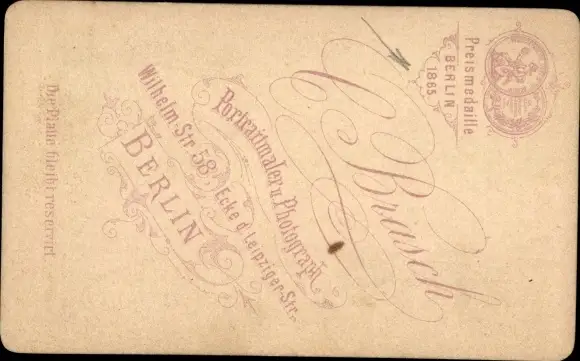 Preismedaille
BERLIN
1865
C. Brasch
Portraitmaler u. Photograph
Wilhelm-Str. 58 Ecke d. Leipziger-Str.
BERLIN
Die Platte bleibt reservirt